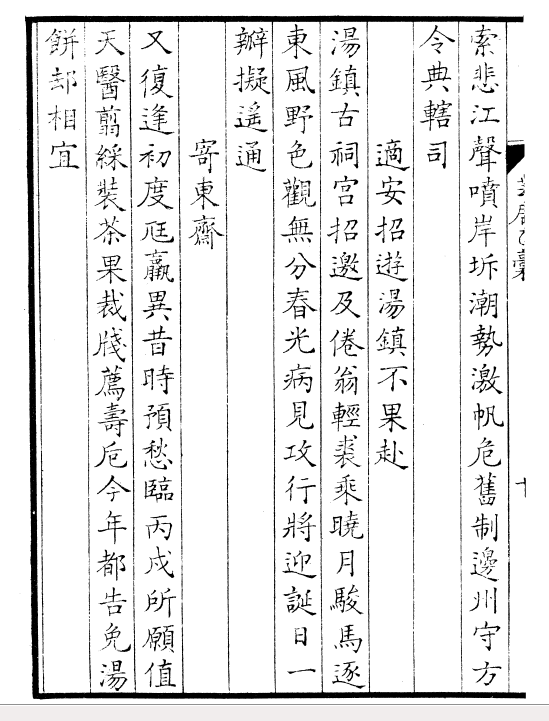 芸居乙藁
索悲江聲噴岸坼潮勢激帆危舊制邊州守方
令典轄司
適安招遊湯鎮不果赴
湯鎮古祠宮招邀及倦翁輕裘乘曉月駿馬逐
東風野色觀無分春光病見攻行將迎誕日一
瓣擬遥通
寄東齋
又復逢初度尫羸異昔時預愁臨丙戌所願值
天醫翦綵裝茶果裁牋薦壽卮今年都告免湯
餅却相宜